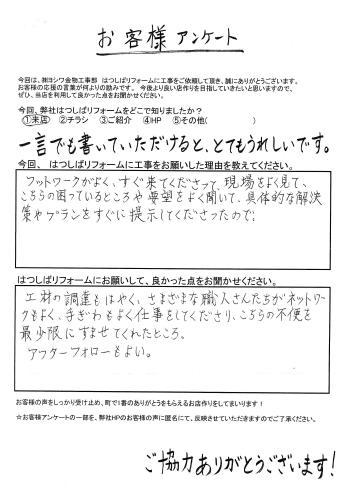 お客様 アンケート
今回は、㈱ヨシワ金物工事部　はつしばリフォームに工事をご依頼して頂き、誠にありがとうございます。
お客様の応援の言葉が何よりの励みです。 今後より良い店作りを目指していきたいと思いますので、
ぜひ、当店を利用して良かった点をお聞かせください。
今回、弊社はつしばリフォームをどこで知りましたか？
①来店　②チラシ　③ご紹介　④HP　⑤その他(　　　　　)
一言でも書いていただけると、とてもうれしいです。
今回、 はつしばリフォームに工事をお願いした理由を教えてください。
フットワークがよく、すぐ来てくださって、現場をよく見て、
こちらの困っているところや要望をよく聞いて、具体的な解決
策やプランをすぐに提示してくださったので;
はつしばリフォームにお願いして、良かった点をお聞かせください。
工材の調達もはやく、さまざまな職人さんたちがネットワー
クもよく、手ぎわもよく仕事をしてくださり、こちらの不便を
最少限にすませてくれたところ。
アフターフォローもよい。
お客様の声をしっかり受け止め、町で1番のありがとうをもらえるお店作りをしてまいります！
☆お客様アンケートの一部を、弊社HPのお客様の声に匿名にて、反映させていただきますのでご了承ください。
ご協力ありがとうございます!